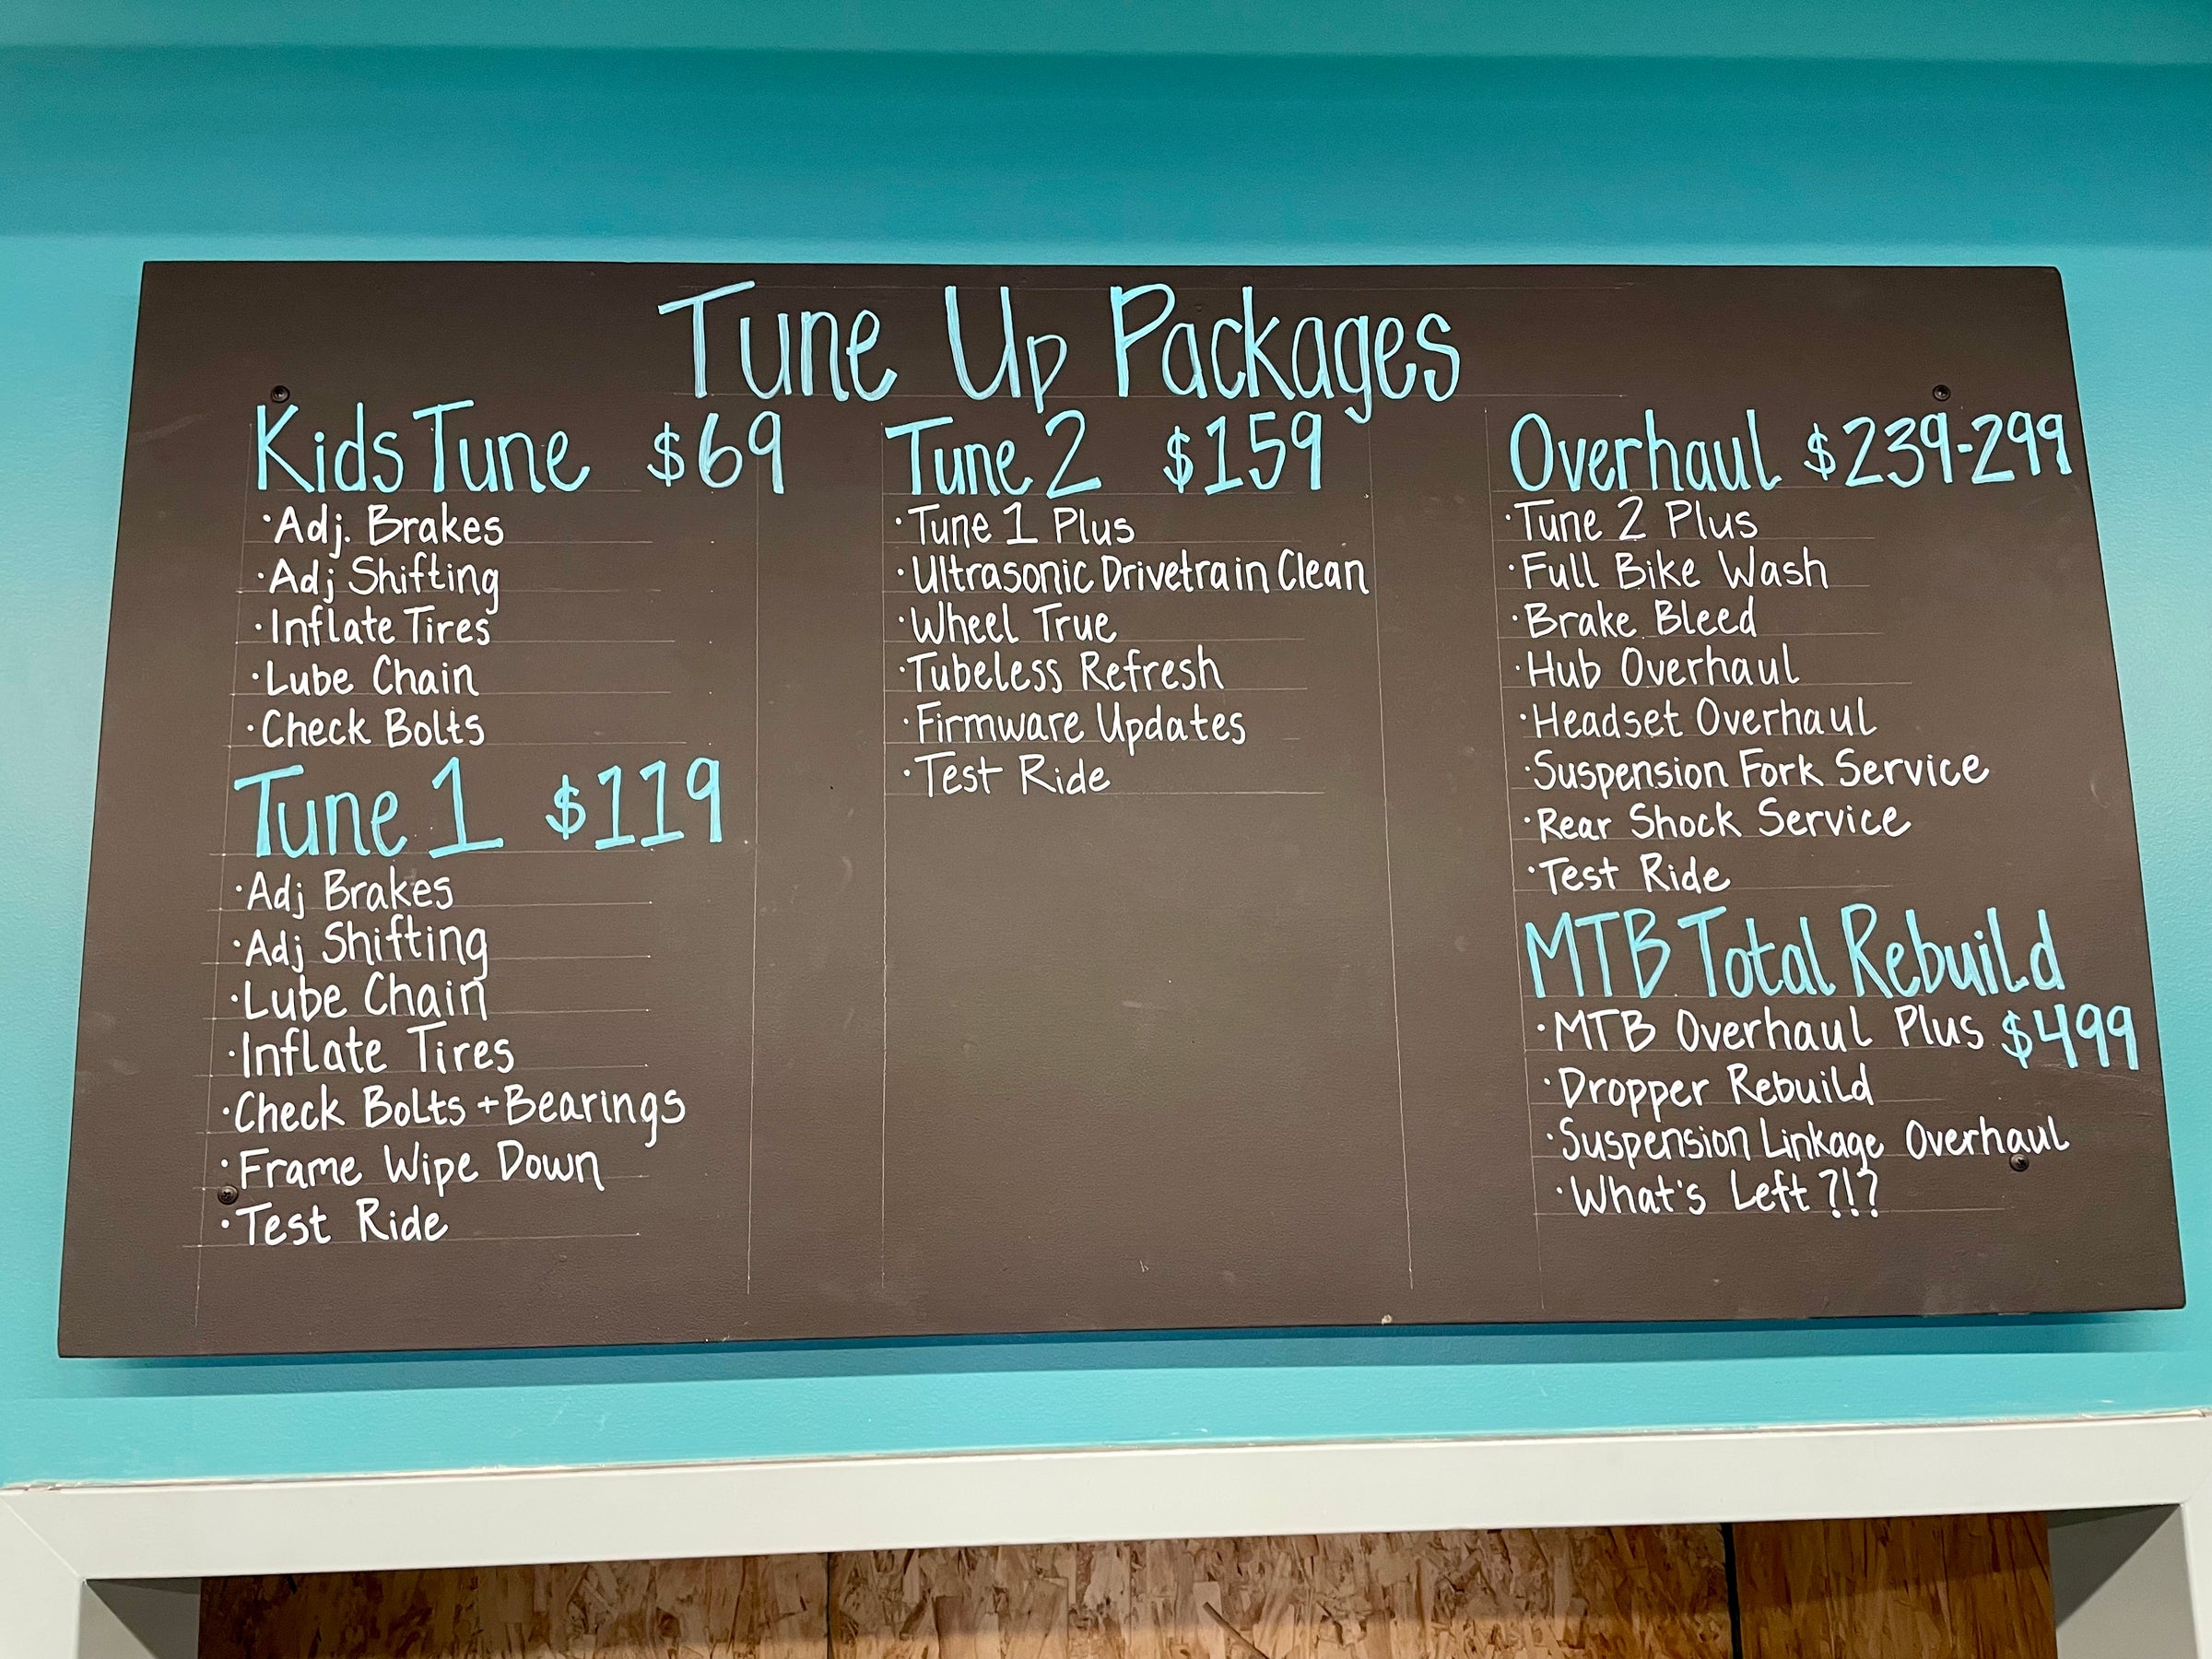 Tune Up Packages
Kids Tune $69
·Adj. Brakes
·Adj Shifting
·Inflate Tires
·Lube Chain
·Check Bolts
Tune 1 $119
·Adj Brakes
·Adj Shifting
·Lube Chain
·Inflate Tires
·Check Bolts + Bearings
·Frame Wipe Down
·Test Ride
Tune 2 $159
·Tune 1 Plus
·Ultrasonic Drivetrain Clean
·Wheel True
·Tubeless Refresh
·Firmware Updates
·Test Ride
Overhaul $239-299
·Tune 2 Plus
·Full Bike Wash
·Brake Bleed
·Hub Overhaul
·Headset Overhaul
·Suspension Fork Service
·Rear Shock Service
·Test Ride
MTB Total Rebuild
·MTB Overhaul Plus $499
·Dropper Rebuild
·Suspension Linkage Overhaul
·What's Left ?!?